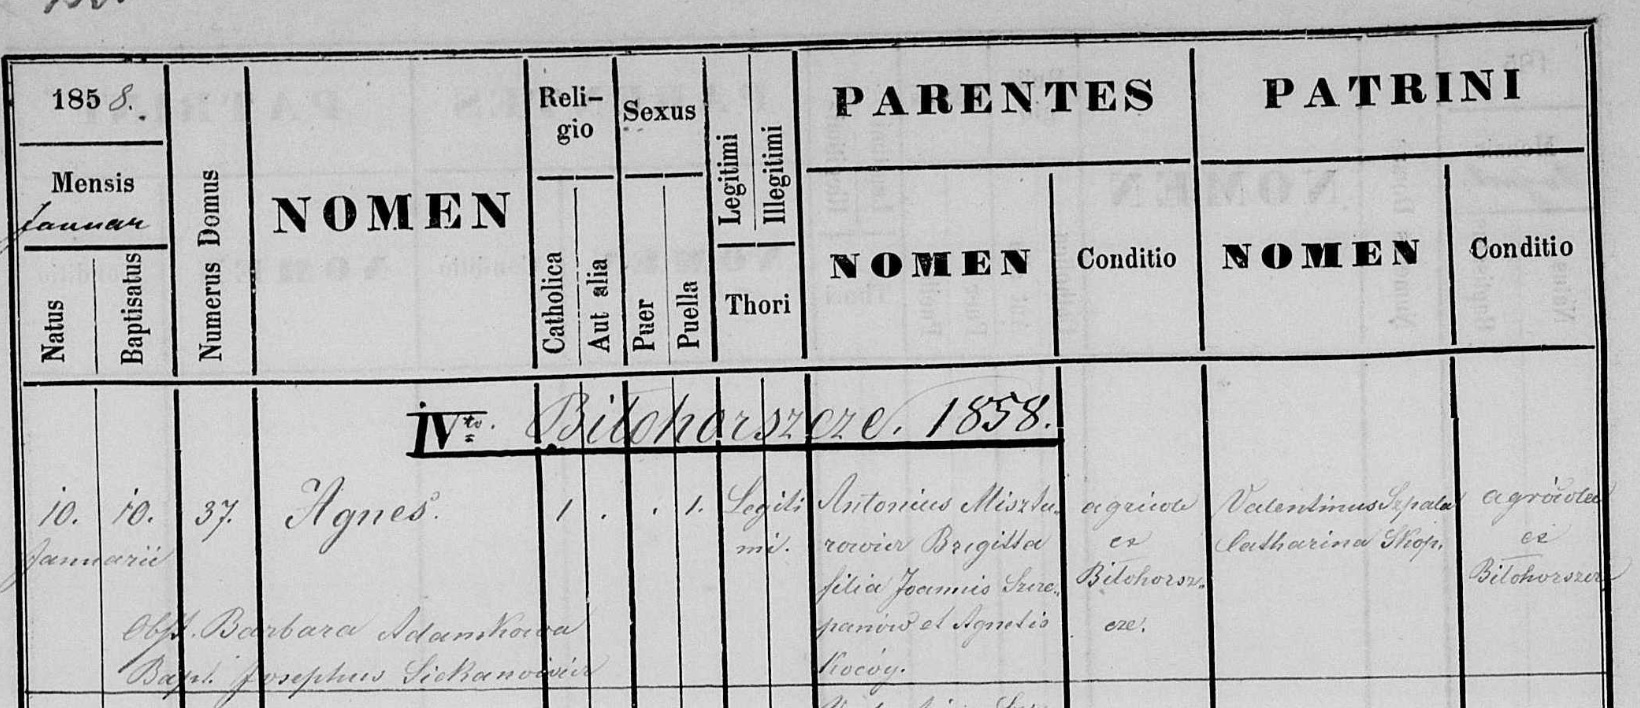 1858.
Mensis
Januar
Natus
Baptisatus
Numerus Domus
NOMEN
Reli-
gio
Catholica
Aut alia
Sexus
Puer
Puella
Legitimi
Illegitimi
Thori
PARENTES
NOMEN
Conditio
PATRINI
NOMEN
Conditio
IVto. Bilohorszcze. 1858.
10. 10. 37. Agnes. 1 . . 1. Legiti Antonius Misztu- agricole Valentinus Szpala agricolae
Januarii mi. rowicz Brigitta ex Catharina Skop. ex
filia Joannis Szcze- Bilohorsz- Bilohorszcze
Obst. Barbara Adamkowa panów et Agnetis cze.
Bapt. Josephus Kocóy.